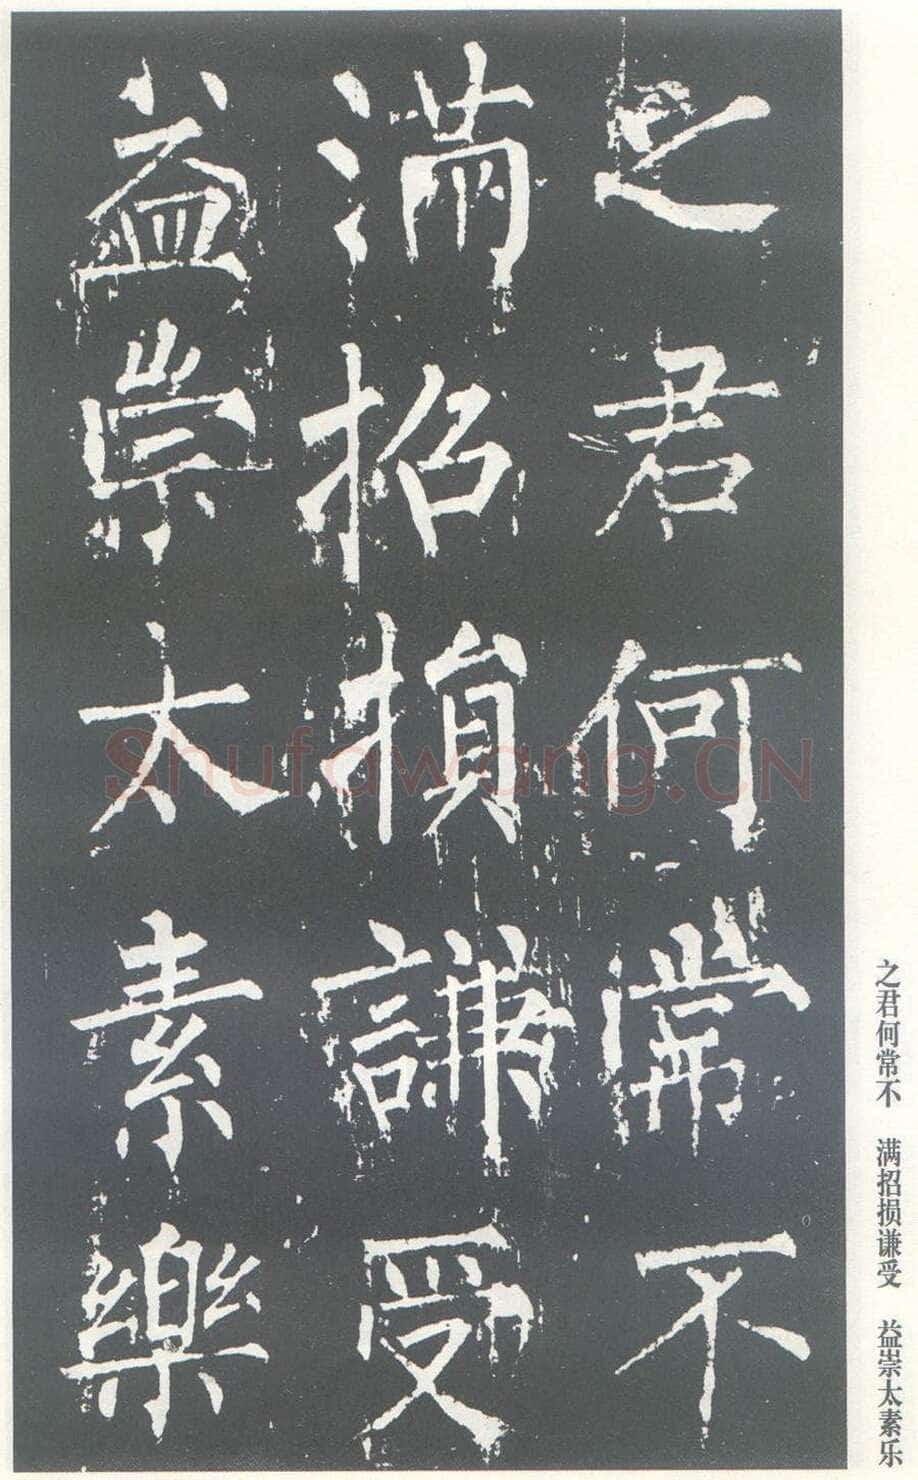 之君何常不
满招损謙受
益崇太素樂
之君何常不 满招损谦受 益崇太素乐
Shufawang.CN